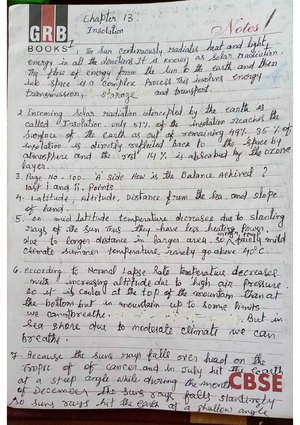 GRB
BOOKS
Chapter 13
Insolation
Notes
1. The sun continuously radiates heat and light
energy in all the directions it is known as solar radiation.
The flow of energy from the sun to the earth and then
into space is a complex process. This involves energy
transmission, storage and transport.
2. Incoming solar radiation intercepted by the earth is
called Insolation. only 51% of the insolation reaches the
surface of the earth as out of remaining 49%. 35% of
insolation is directly reflected back to the space by
atmosphere and the rest 14% is absorbed by the ozone
layer.
3. Page No - 100. A side How is the Balance Achived ?
last i and ii. Points
4. Latitude, Altitude, Distance from the sea, and slope
of land.
5. on mid latitude temperature decreases due to slanting
rays of the sun thus they have less heating power.
due to larger distance in larger area. so fairly mild
climate summer temperature rarely go above 40°C.
6. According to Normal Lapse Rate temperature decreases
with increasing altitude due to high air pressure.
so it is cooler at the top of the mountain than at
the bottom but in mountain up to some limits
we can breathe. But in
sea shore due to moderate climate we can
breathe.
7. Because the suns rays falls over head on the
Tropic of cancer and in July hit the earth
at a steep angle while during the month
of December the suns rays falls slantingly
so suns rays hit the earth at a shallow angle
CBSE